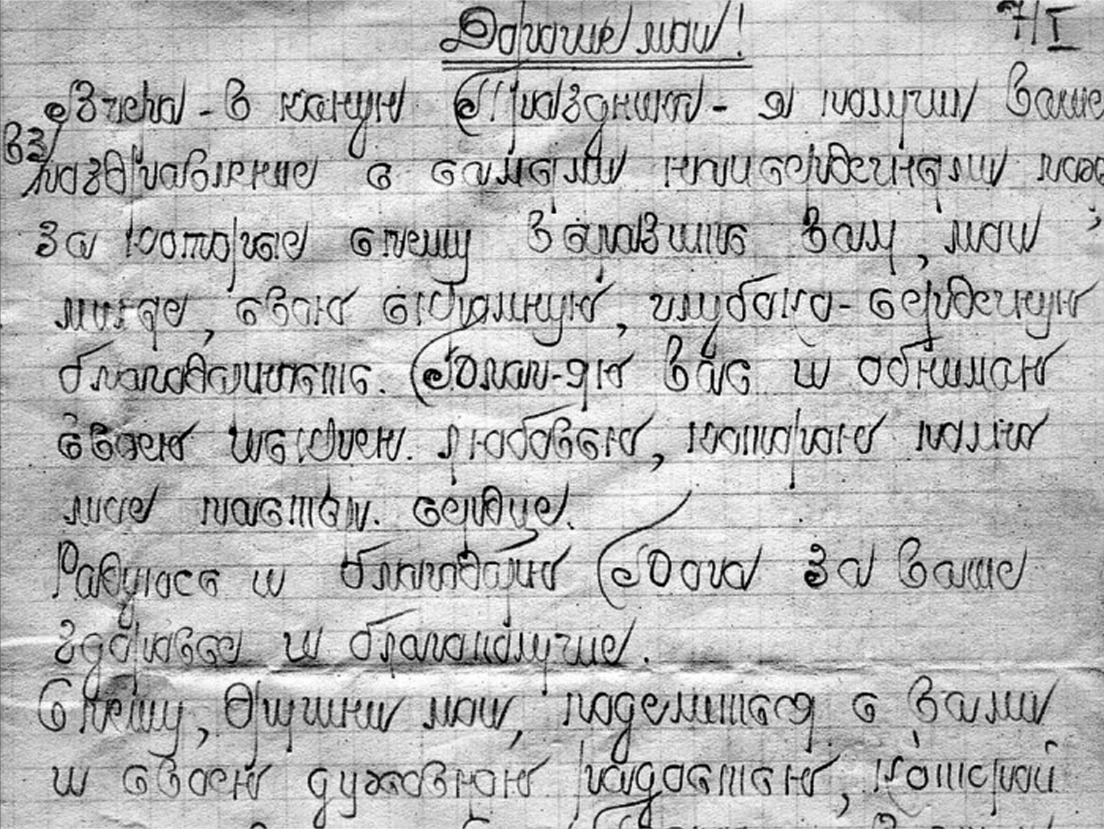 Дорогие мои! 7/I
Вчера - в канун Праздника - я получил Ваше
поздравление с самыми наисердечными
за которые спешу выразить Вам, мои
милые, свою огромную, глубоко-сердечную
благодарность. Вас и обнимаю
своею любовью, которою полно
мое сердце.
Радуюсь и благодарю Бога за Ваше
здоровье и благополучие.
Спешу, мои, поделиться с Вами
и своею духовною радостью, которой